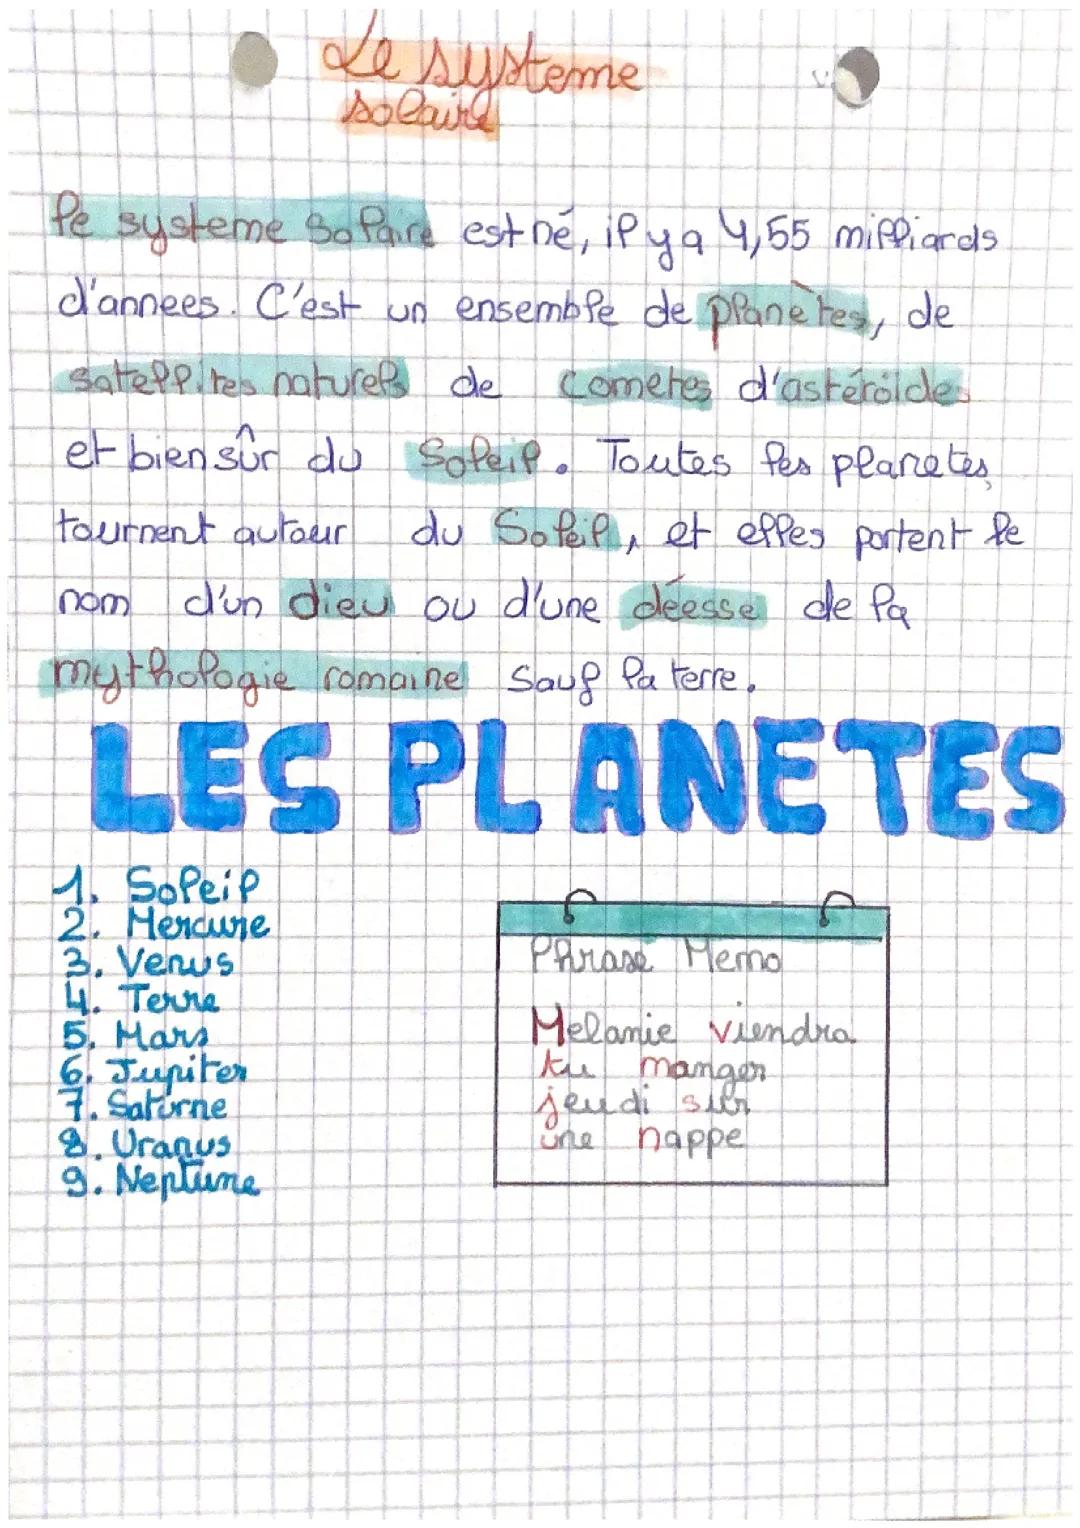 Le systeme
solaire
le systeme solaire est né, il y a 4,55 milliards
d'annees. C'est un ensemble de planètes, de
satellites naturels de cometes d'astéroïdes
et bien sûr du Soleil. Toutes les planetes
tournent autour du Soleil, et elles portent le
nom d'un dieu ou d'une déesse de la
mythologie romaine sauf la terre.
LES PLANETES
1. Soleil
2. Mercure
3. Venus
4. Terre
5. Mars
6. Jupiter
7. Saturne
8. Uranus
9. Neptune
Phrase Memo
Melanie viendra
tu manger
jeudi sur
une nappe